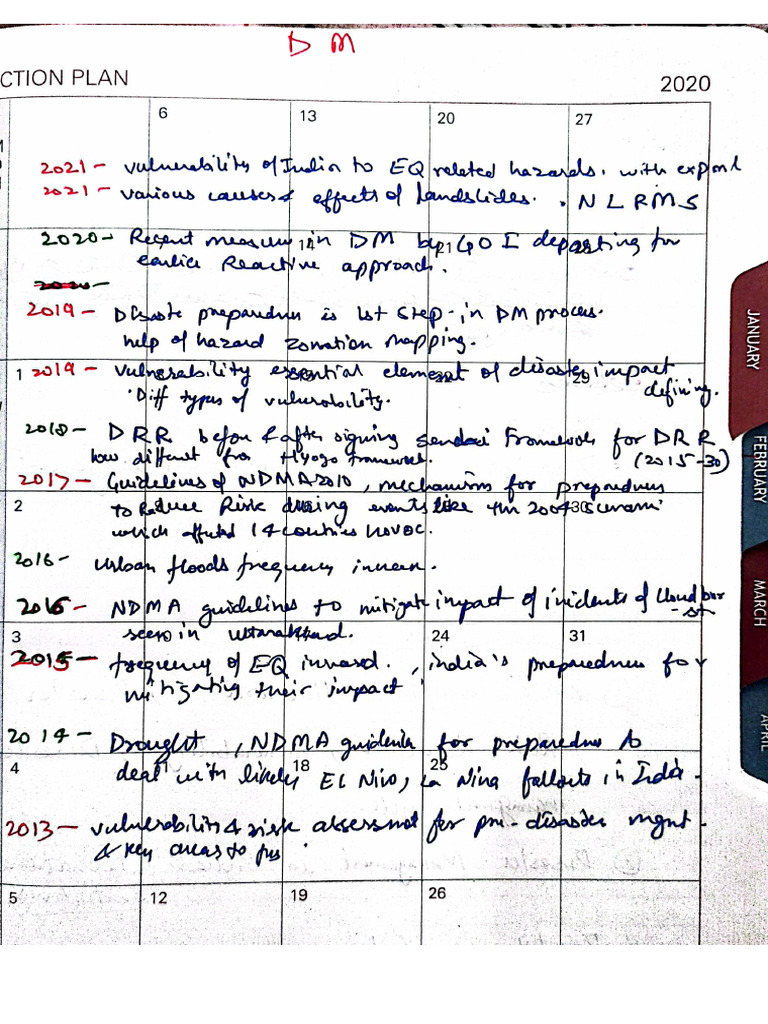 D M
CTION PLAN 2020
6 13 20 27
2021 - vulnerability of India to EQ related hazards. with
2021 - various causes & effects of landslides. . N L R M S
2020 - Recent measures in DM by GOI departing for
earlier Reactive approach.
2019 - Disaste preparednes is 1st step in DM process.
help of hazard zonation mapping.
1 2019 - vulnerability essential element of disaster impact 29
defining.
Diff types of vulnerability.
2018 - DRR before & after signing Sendai Framework for DRR
how different from Hyogo framework. (2015-30)
2017 - Guidelines of NDMA 2010, mechanisms for preparednes
2 to Reduce Risk during events like 2004
which affected 14 countries havoc.
2016 - Urban floods frequency
2016 - NDMA guidelines to mitigate impact of incidents of cloudbur
-st
seen in uttarakhand.
3 24 31
2015 - frequency of EQ , india's preparednes for
mitigating their impact
2014 - Drought, NDMA for preparednes to
4 11 18 25
deal with likely EL Nino, La Nina fallouts in India.
2013 - vulnerability & risk for pre-disaster mgnt.
& key areas to
5 12 19 26
JANUARY
FEBRUARY
MARCH
APRIL